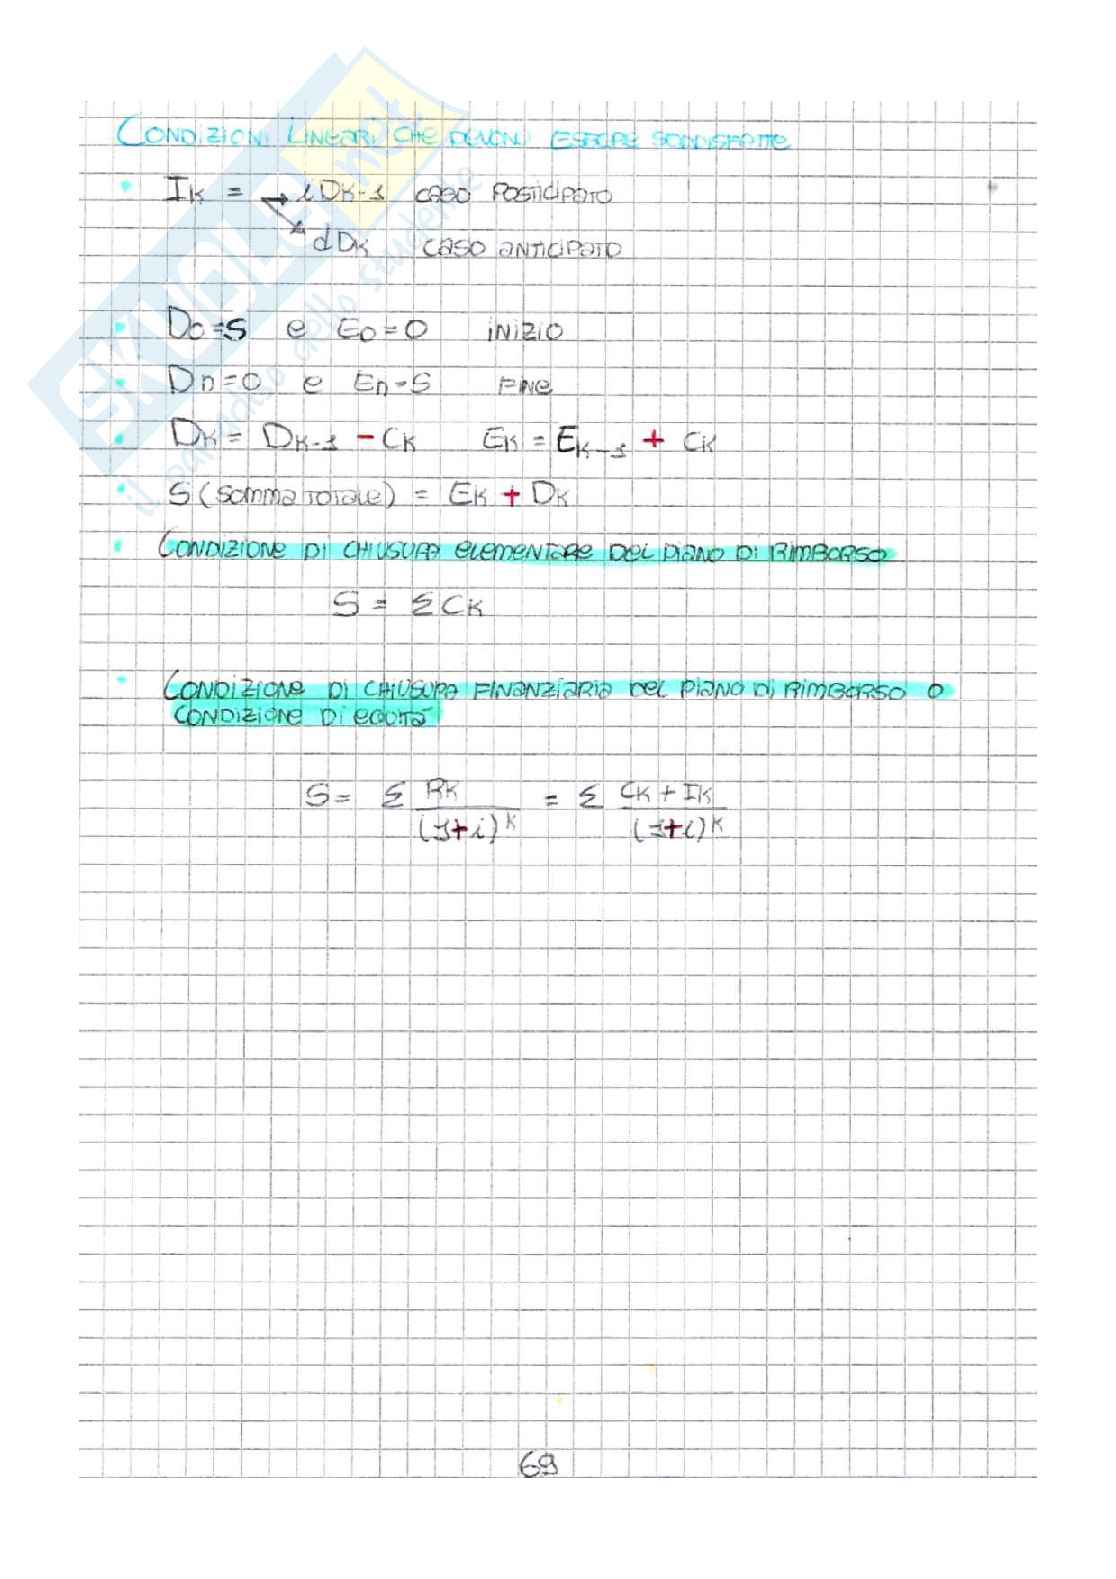 CONDIZIONI LINEARI CHE DEVONO ESSERE SODDISFATTE
• IK = → iDK-1 CASO POSTICIPATO
↘ dDK CASO ANTICIPATO
• D0=S e E0=0 INIZIO
• Dn=0 e En=S FINE
• DK = DK-1 - CK EK = EK-1 + CK
• S (SOMMA TOTALE) = EK + DK
• CONDIZIONE DI CHIUSURA ELEMENTARE DEL PIANO DI RIMBORSO
S = ΣCK
• CONDIZIONE DI CHIUSURA FINANZIARIA DEL PIANO DI RIMBORSO O
CONDIZIONE DI EQUITÀ
S = Σ RK/(1+i)^K = Σ CK + IK/(1+i)^K
69
SKUOLA.net
il paradiso dello studente